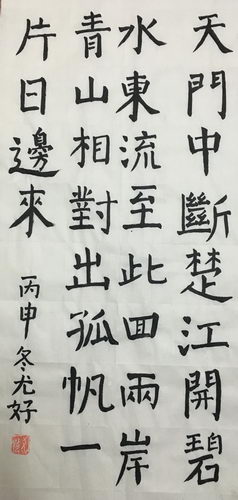 天門中斷楚江開碧
水東流至此回兩岸
青山相對出孤帆一
片日邊來
丙申冬尤好